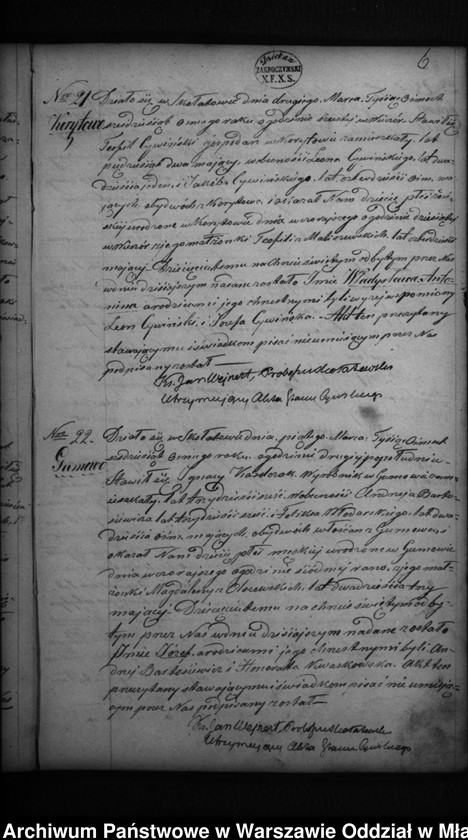 6
Powiatu
ZAKROCZYMSKI
X.F.X.S.
Nro 21
Korytowo
Działo się w Skołatowie dnia drugiego Marca Tysiąc Ośmset
sześdziesiąt ósmego roku o godzinie szóstej wieczór. Stawił się
Teofil Cywiński gospodarz w Korytowie zamieszkały, lat
pięćdziesiąt dwa mający, w obecności Leona Cywińskiego, lat dwa-
dzieścia jeden, i Jakóba Cywińskiego, lat czterdzieści ośm, ma-
jących, obydwóch z Korytowa, i okazał Nam dziecię płci żeń-
skiej urodzone w Korytowie dnia wczorajszego o godzinie dziesiątej
wieczór z jego małżonki Teofili z Maliszewskich, lat czterdzieści
mającej. Dziecięciu temu na Chrzcie świętym odbytym przez Nas
w dniu dzisiejszym nadane zostało Imie Władysława Anto-
nina, a rodzicami jego chrzestnymi byli wyżej wspomniony
Leon Cywiński i Józefa Cywińska. Akt ten przeczytany
stawającemu i świadkom pisać nieumiejącym przez Nas
podpisany został
Ks. Jan Wejnert, Proboszcz Skołatowski
Utrzymujący Akta Stanu Cywilnego
Nro 22.
Gumowo
Działo się w Skołatowie dnia piątego Marca Tysiąc Ośmset
sześdziesiąt ósmego roku o godzinie drugiej popołudniu.
Stawił się Ignacy Kaczorek, Wyrobnik w Gumowie zamie-
szkały, lat trzydzieści sześć, w obecności Andrzeja Barto-
siewicza lat trzydzieści sześć i Feliksa Włodarskiego, lat dwa-
dzieścia ośm, mających, obydwóch włościan z Gumowa, i
okazał Nam dziecię płci męskiej urodzone w Gumowie
dnia wczorajszego o godzinie siódmej rano, z jego mał-
żonki Magdaleny z Olszewskich, lat dwadzieścia trzy
mającej. Dziecięciu temu na chrzcie świętym odby-
tym przez Nas w dniu dzisiejszym nadane zostało
Imie Józef, a rodzicami jego chrzestnymi byli An-
drzej Bartosiewicz i Honorata Kwaskowska. Akt ten
przeczytany stawającemu i świadkom pisać nie umieją-
cym przez Nas podpisany został
Ks. Jan Wejnert, Proboszcz Skołatowski
Utrzymujący Akta Stanu Cywilnego
Archiwum Państwowe w Warszawie Oddział w Mła